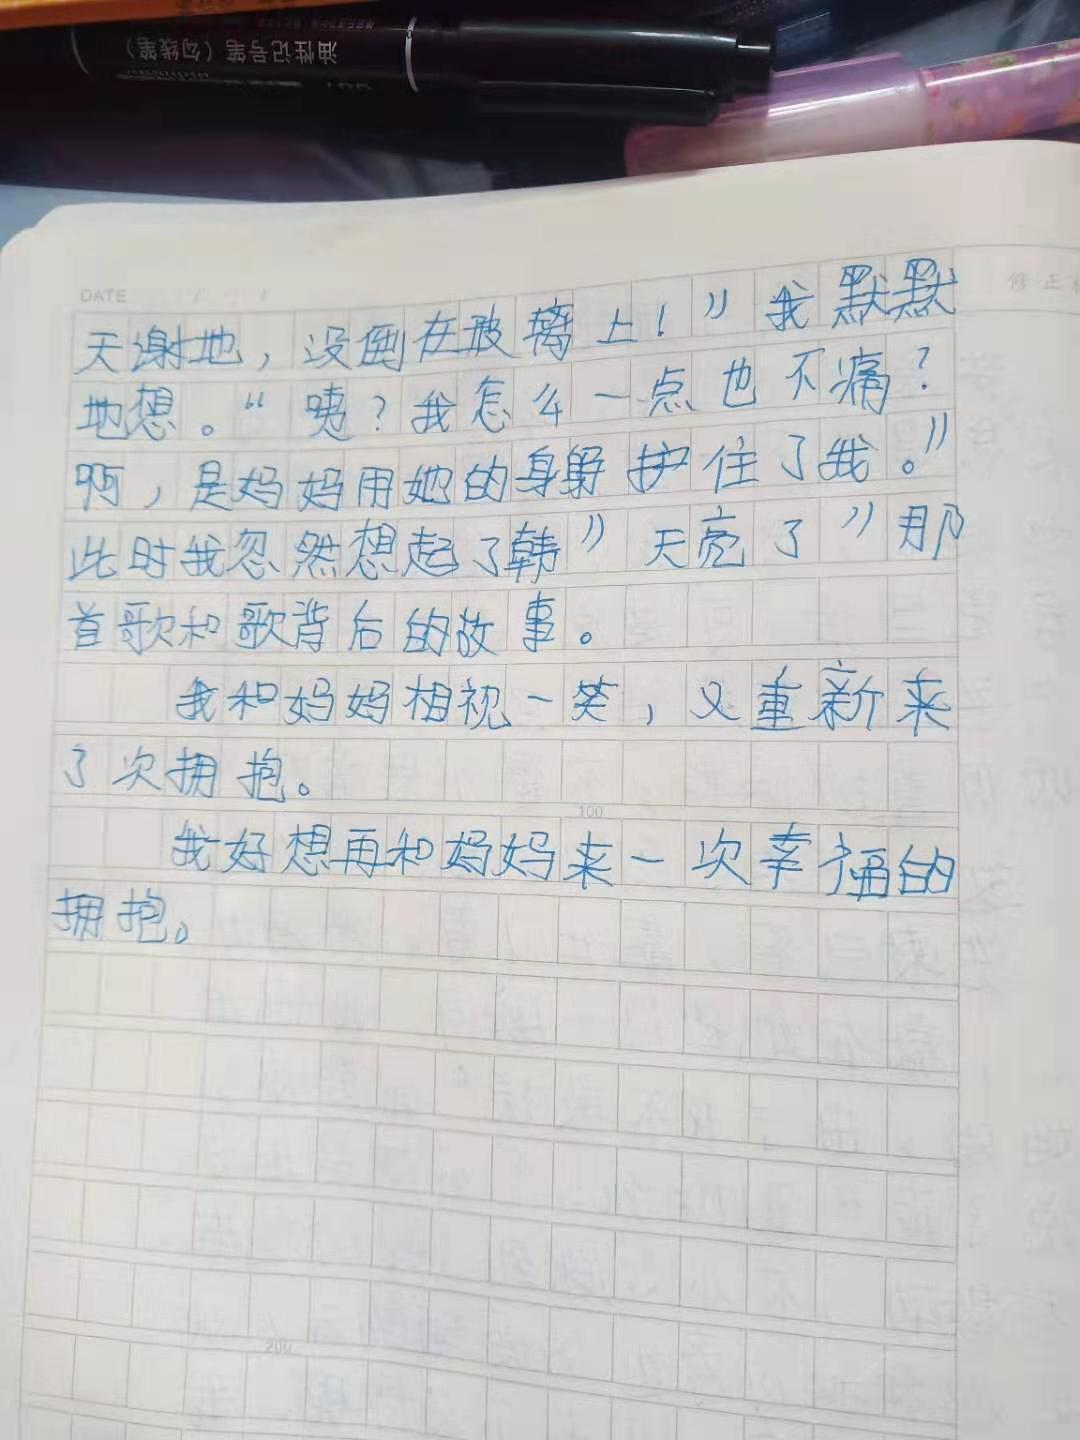 油性记号笔(勾线笔)
DATE / /
修正
天谢地，没倒在玻璃上！”我默默
地想。“咦？我怎么一点也不痛？
啊，是妈妈用她的身躬护住了我。”
此时我忽然想起了韩”天亮了”那
首歌和歌背后的故事。
我和妈妈相视一笑，又重新来
了次拥抱。
100
我好想再和妈妈来一次幸福的
拥抱。
200